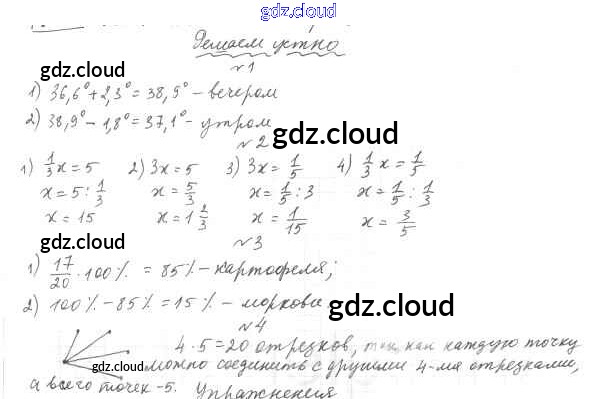 gdz.cloud
Решаем устно
gdz.cloud
№1
1) 36,6° + 2,3° = 38,9° – вечером
gdz.cloud
2) 38,9° – 1,8° = 37,1° – утром
gdz.cloud
№2
1) 1/3 x = 5 2) 3x = 5 3) 3x = 1/5 4) 1/3 x = 1/5
x = 5 : 1/3 x = 5/3 x = 1/5 : 3 x = 1/5 : 1/3
x = 15 x = 1 2/3 x = 1/15 x = 3/5
gdz.cloud
gdz.cloud
№3
1) 17/20 · 100% = 85% – картофеля;
2) 100% – 85% = 15% – моркови.
gdz.cloud
№4
gdz.cloud
4 · 5 = 20 отрезков, так как каждую точку
можно соединить с другими 4-мя отрезками,
а всего точек – 5. Упражнения
gdz.cloud
gdz.cloud